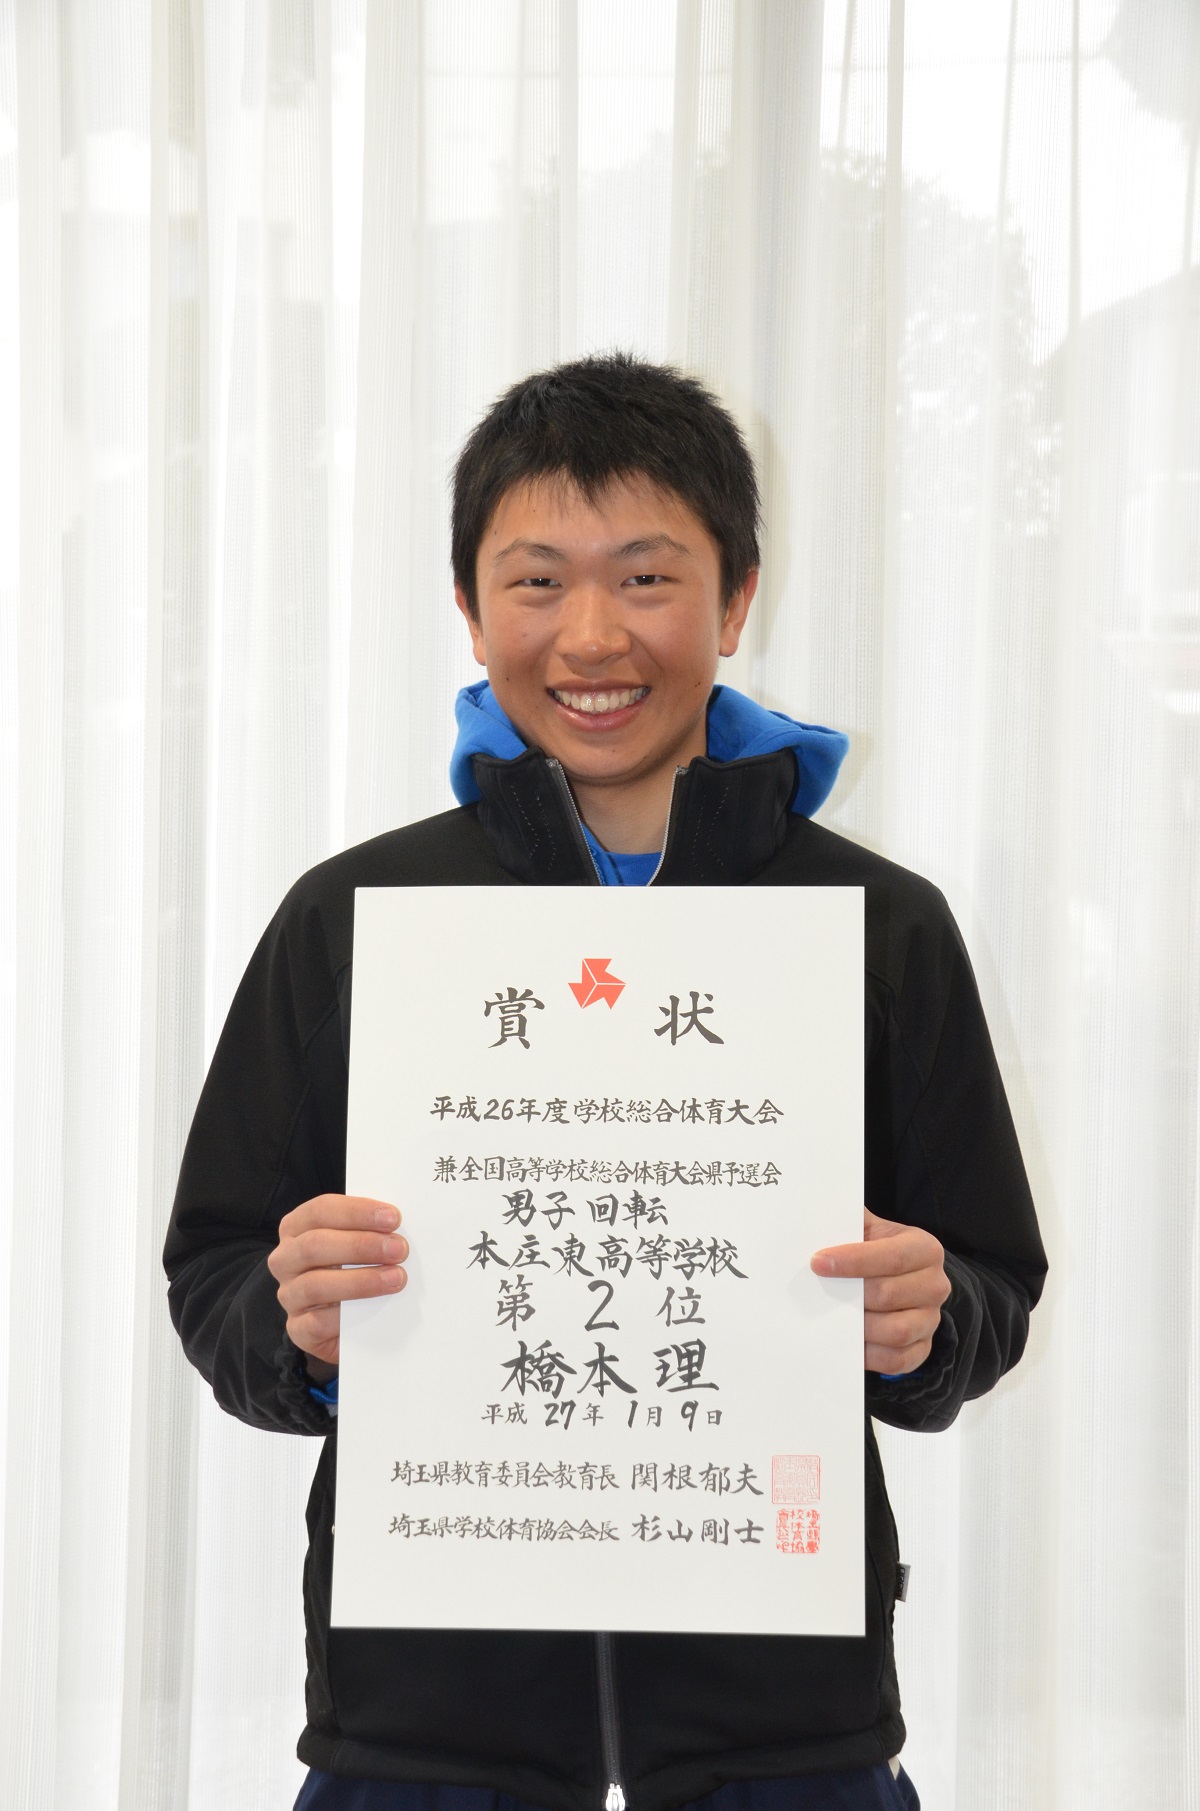 賞 状
平成26年度学校総合体育大会
兼全国高等学校総合体育大会県予選会
男子 回転
本庄東高等学校
第 2 位
橋本 理
平成 27年 1月 9日
埼玉県教育委員会教育長 関根郁夫
埼玉県学校体育協会会長 杉山剛士